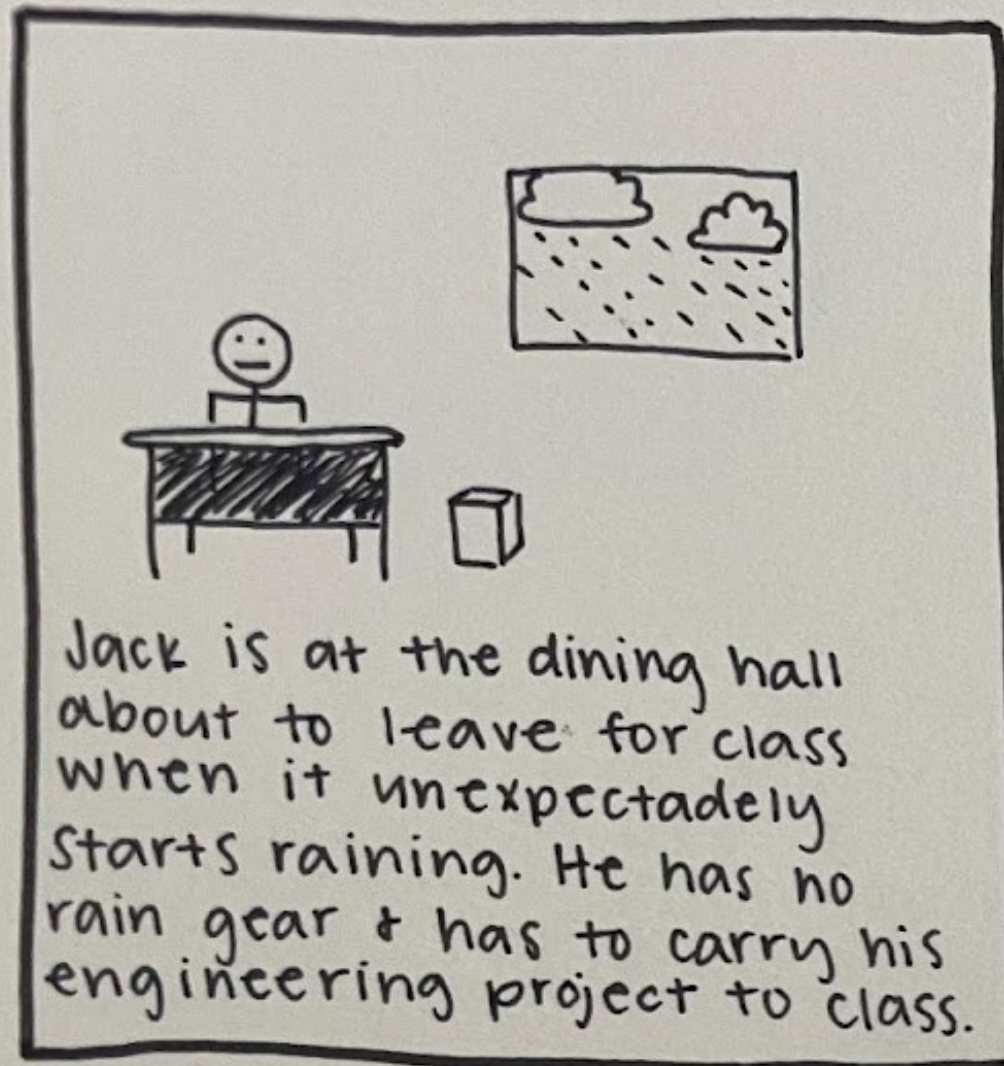 Jack is at the dining hall
about to leave for class
when it unexpectadely
starts raining. He has no
rain gear & has to carry his
engineering project to class.